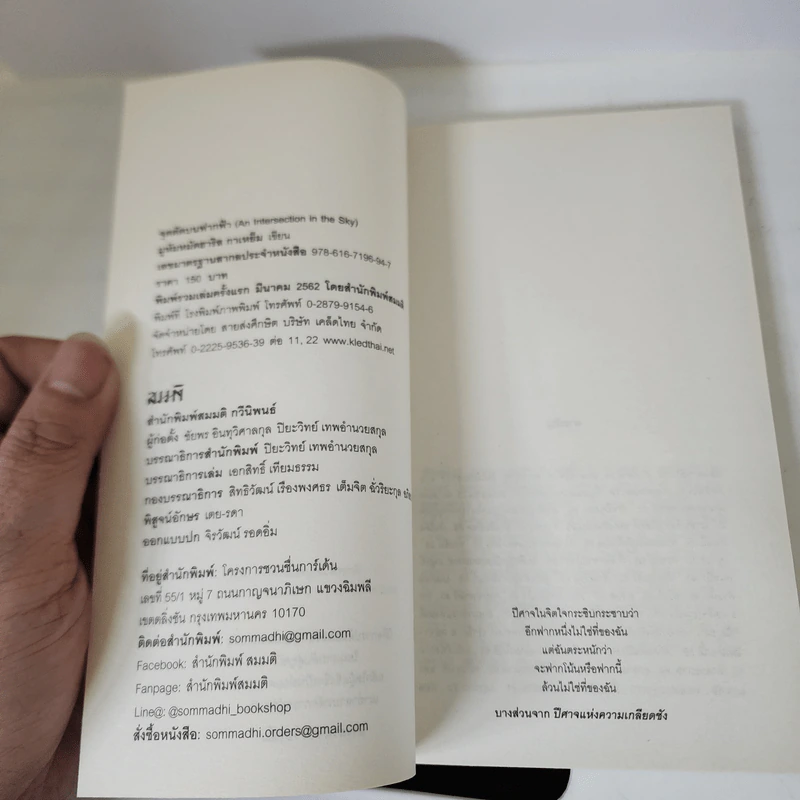 จุดตัดบนฟากฟ้า (An Intersection in the Sky)
มูหัมหมัดฮาริส กาเหย็ม เขียน
เลขมาตรฐานสากลประจำหนังสือ 978-616-7196-94-7
ราคา 150 บาท
พิมพ์รวมเล่มครั้งแรก มีนาคม 2562 โดยสำนักพิมพ์สมมติ
พิมพ์ที่ โรงพิมพ์ภาพพิมพ์ โทรศัพท์ 0-2879-9154-6
จัดจำหน่ายโดย สายส่งศึกษิต บริษัท เคล็ดไทย จำกัด
โทรศัพท์ 0-2225-9536-39 ต่อ 11, 22 www.kledthai.net
สำนักพิมพ์สมมติ กวีนิพนธ์
ผู้ก่อตั้ง ชัยพร อินทุวิศาลกุล ปิยะวิทย์ เทพอำนวยสกุล
บรรณาธิการสำนักพิมพ์ ปิยะวิทย์ เทพอำนวยสกุล
บรรณาธิการเล่ม เอกสิทธิ์ เทียมธรรม
กองบรรณาธิการ สิทธิวัฒน์ เรืองพงศธร เต็มจิต ฉั่วริยะกุล
พิสูจน์อักษร เตย-รดา
ออกแบบปก จิรวัฒน์ รอดอิ่ม
ที่อยู่สำนักพิมพ์: โครงการชวนชื่นการ์เด้น
เลขที่ 55/1 หมู่ 7 ถนนกาญจนาภิเษก แขวงฉิมพลี
เขตตลิ่งชัน กรุงเทพมหานคร 10170
ติดต่อสำนักพิมพ์: sommadhi@gmail.com
Facebook: สำนักพิมพ์ สมมติ
Fanpage: สำนักพิมพ์สมมติ
Line@: @sommadhi_bookshop
สั่งซื้อหนังสือ: sommadhi.orders@gmail.com
ปีศาจในจิตใจกระซิบกระซาบว่า
อีกฟากหนึ่งไม่ใช่ที่ของฉัน
แต่ฉันตระหนักว่า
จะฟากโน้นหรือฟากนี้
ล้วนไม่ใช่ที่ของฉัน
บางส่วนจาก ปีศาจแห่งความเกลียดชัง